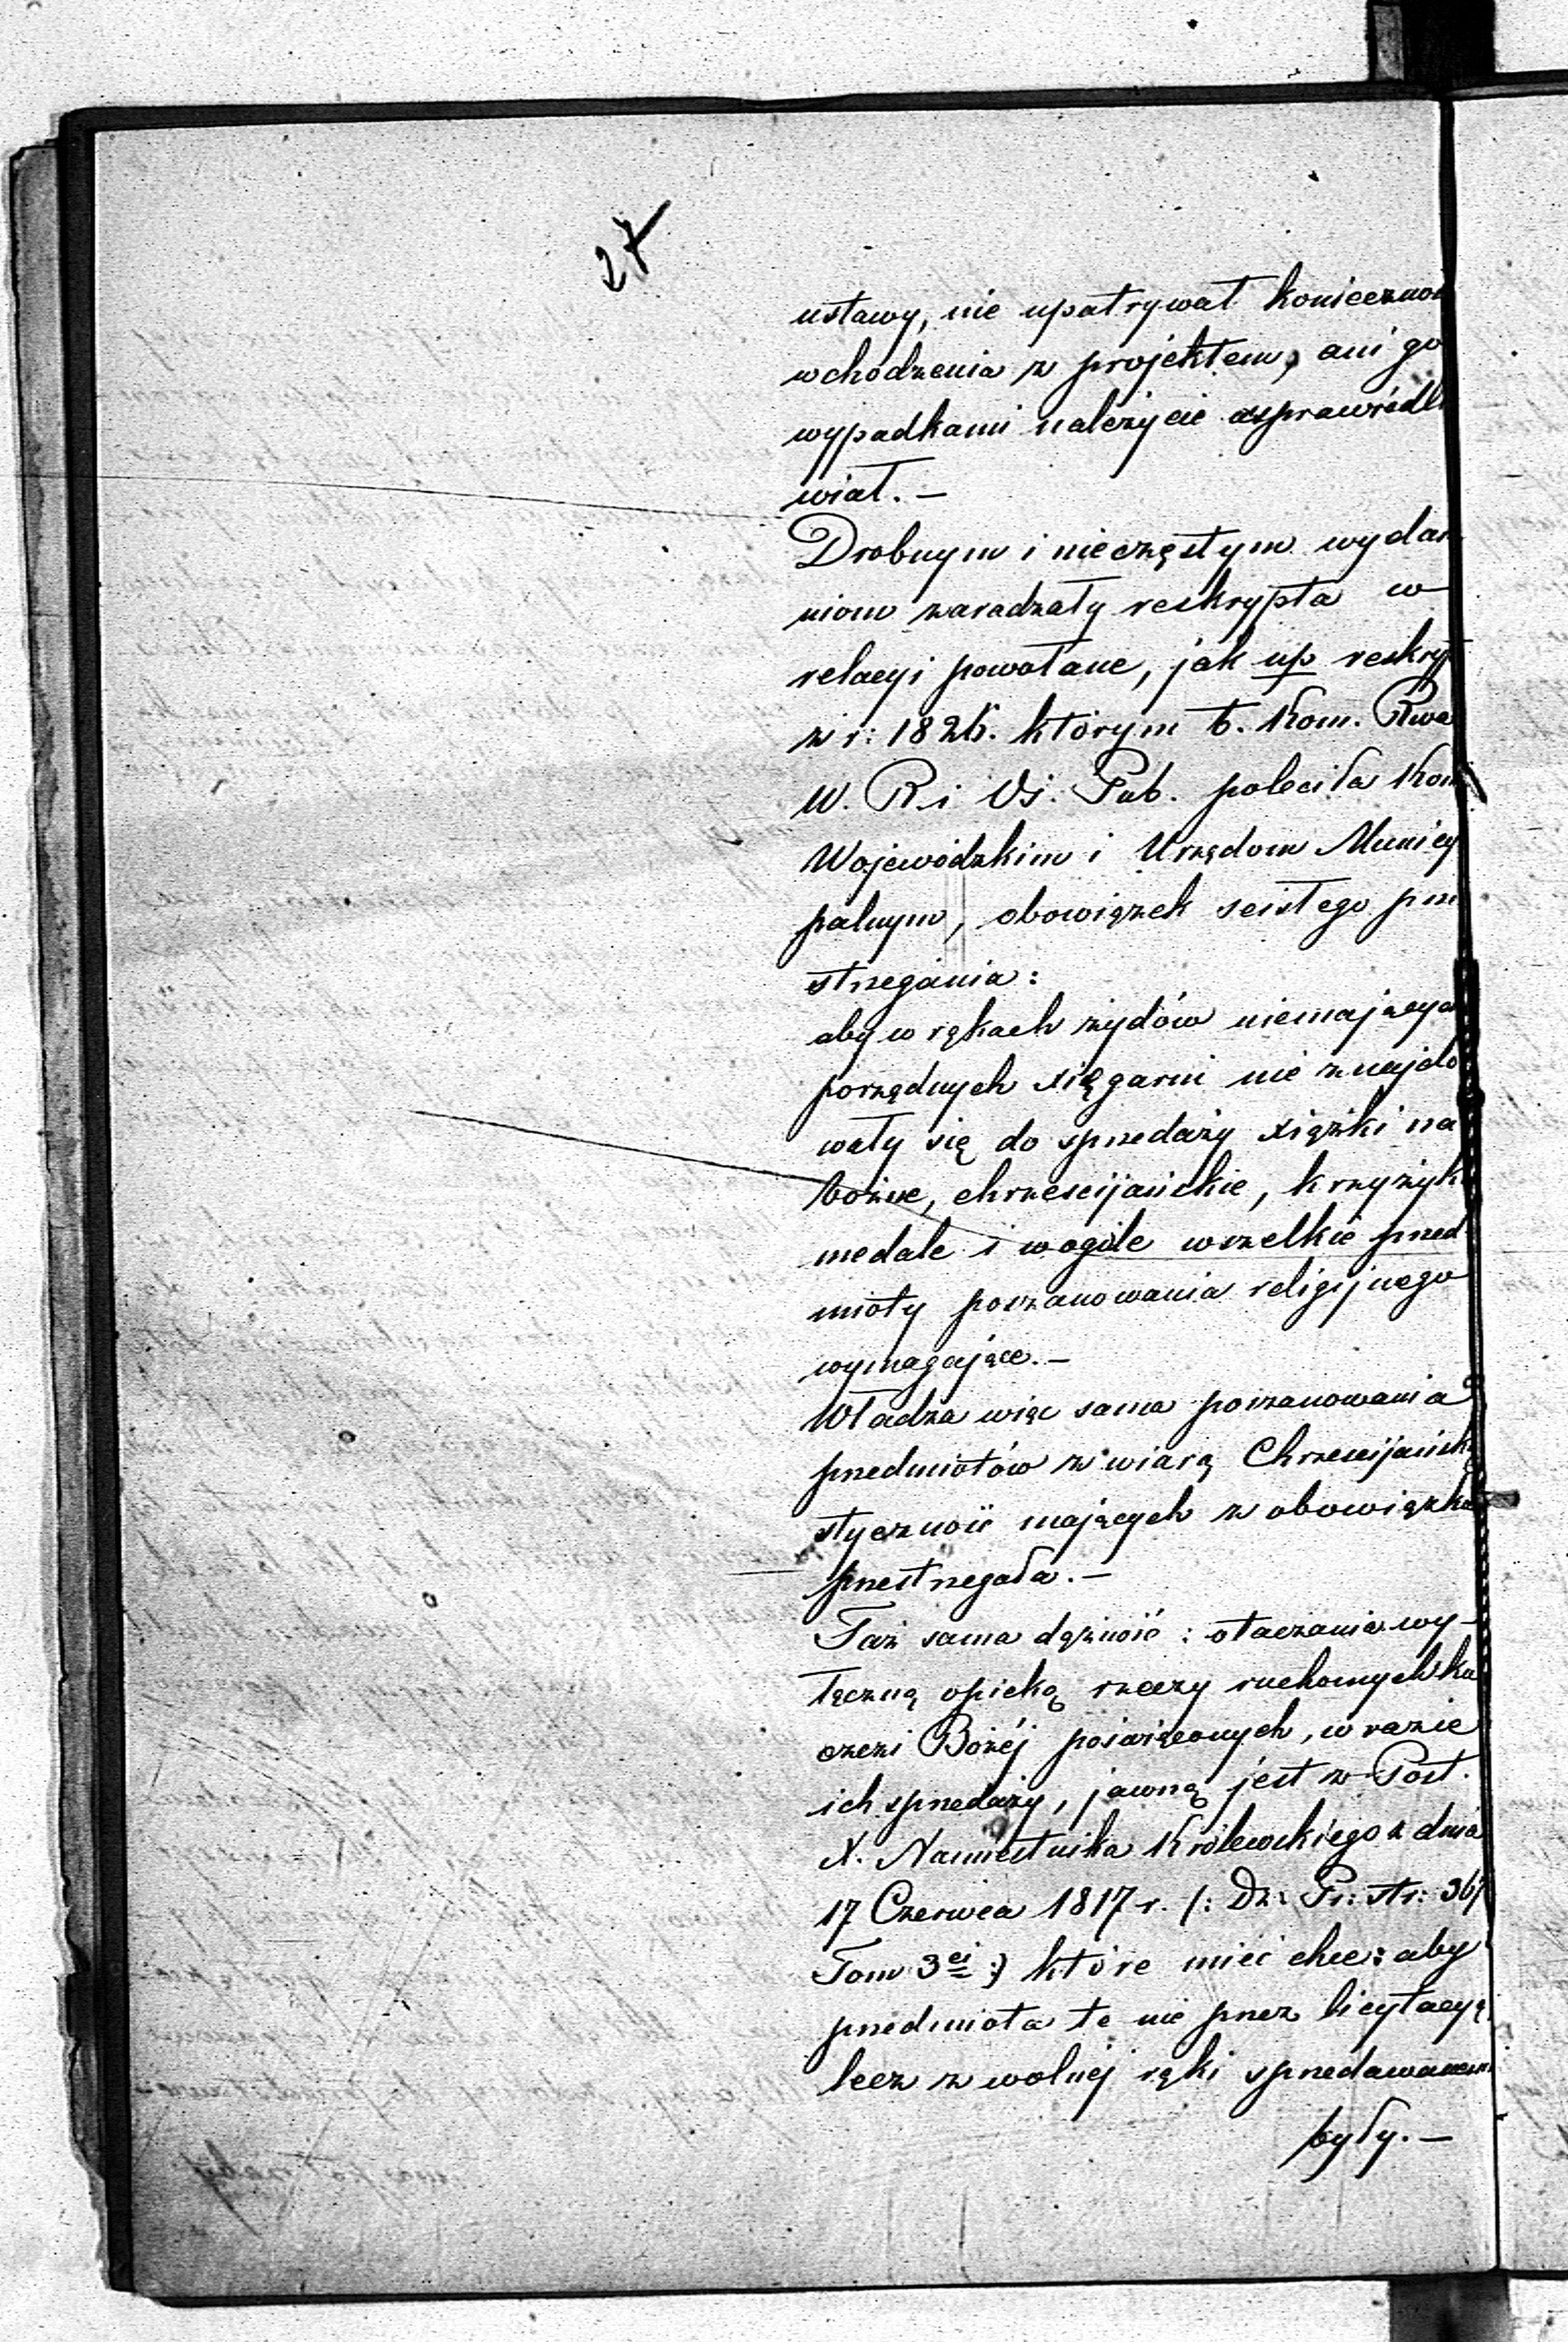 27
ustawy, nie upatrywał koniecznoś
wchodzenia z projektem, ani go
wypadkami należycie usprawiedli
wiał. —
Drobnym i nieczęstym wydar
niom zaradzały reskrypta w
relacyi powołane, jak np reskryp
z r: 1826. którym b. Kom. Rwa
W. R. i Oś. Pub. poleciła Kom
Wojewódzkim i Urzędom Municy
palnym, obowiązek scisłego prze
strzegania:
aby w rękach żydów niemających
porządnych xięgarni nie znajdo
wały się do sprzedaży xiążki na
bożne, chrześcijańskie, krzyżyki
medale i wogóle wszelkie przed
mioty poszanowania religijnego
wymagające. —
Władza więc sama poszanowania
przedmiotów z wiarą Chrześcijańską
styczność mających z obowiązku
przestrzegała. —
Taż sama dążność: otaczania wy-
łączną opieką rzeczy ruchomych ku
czci Bożéj poświęconych, w razie
ich sprzedaży, jawną jest z Post.
X. Namiestnika Królewskiego z dnia
17 Czerwca 1817 r. /: Dz: Pr: str: 367
Tom 3ei :/ które mieć chce: aby
przedmiota te nie przez licytacyą
lecz z wolnéj ręki sprzedawanemi
były. —